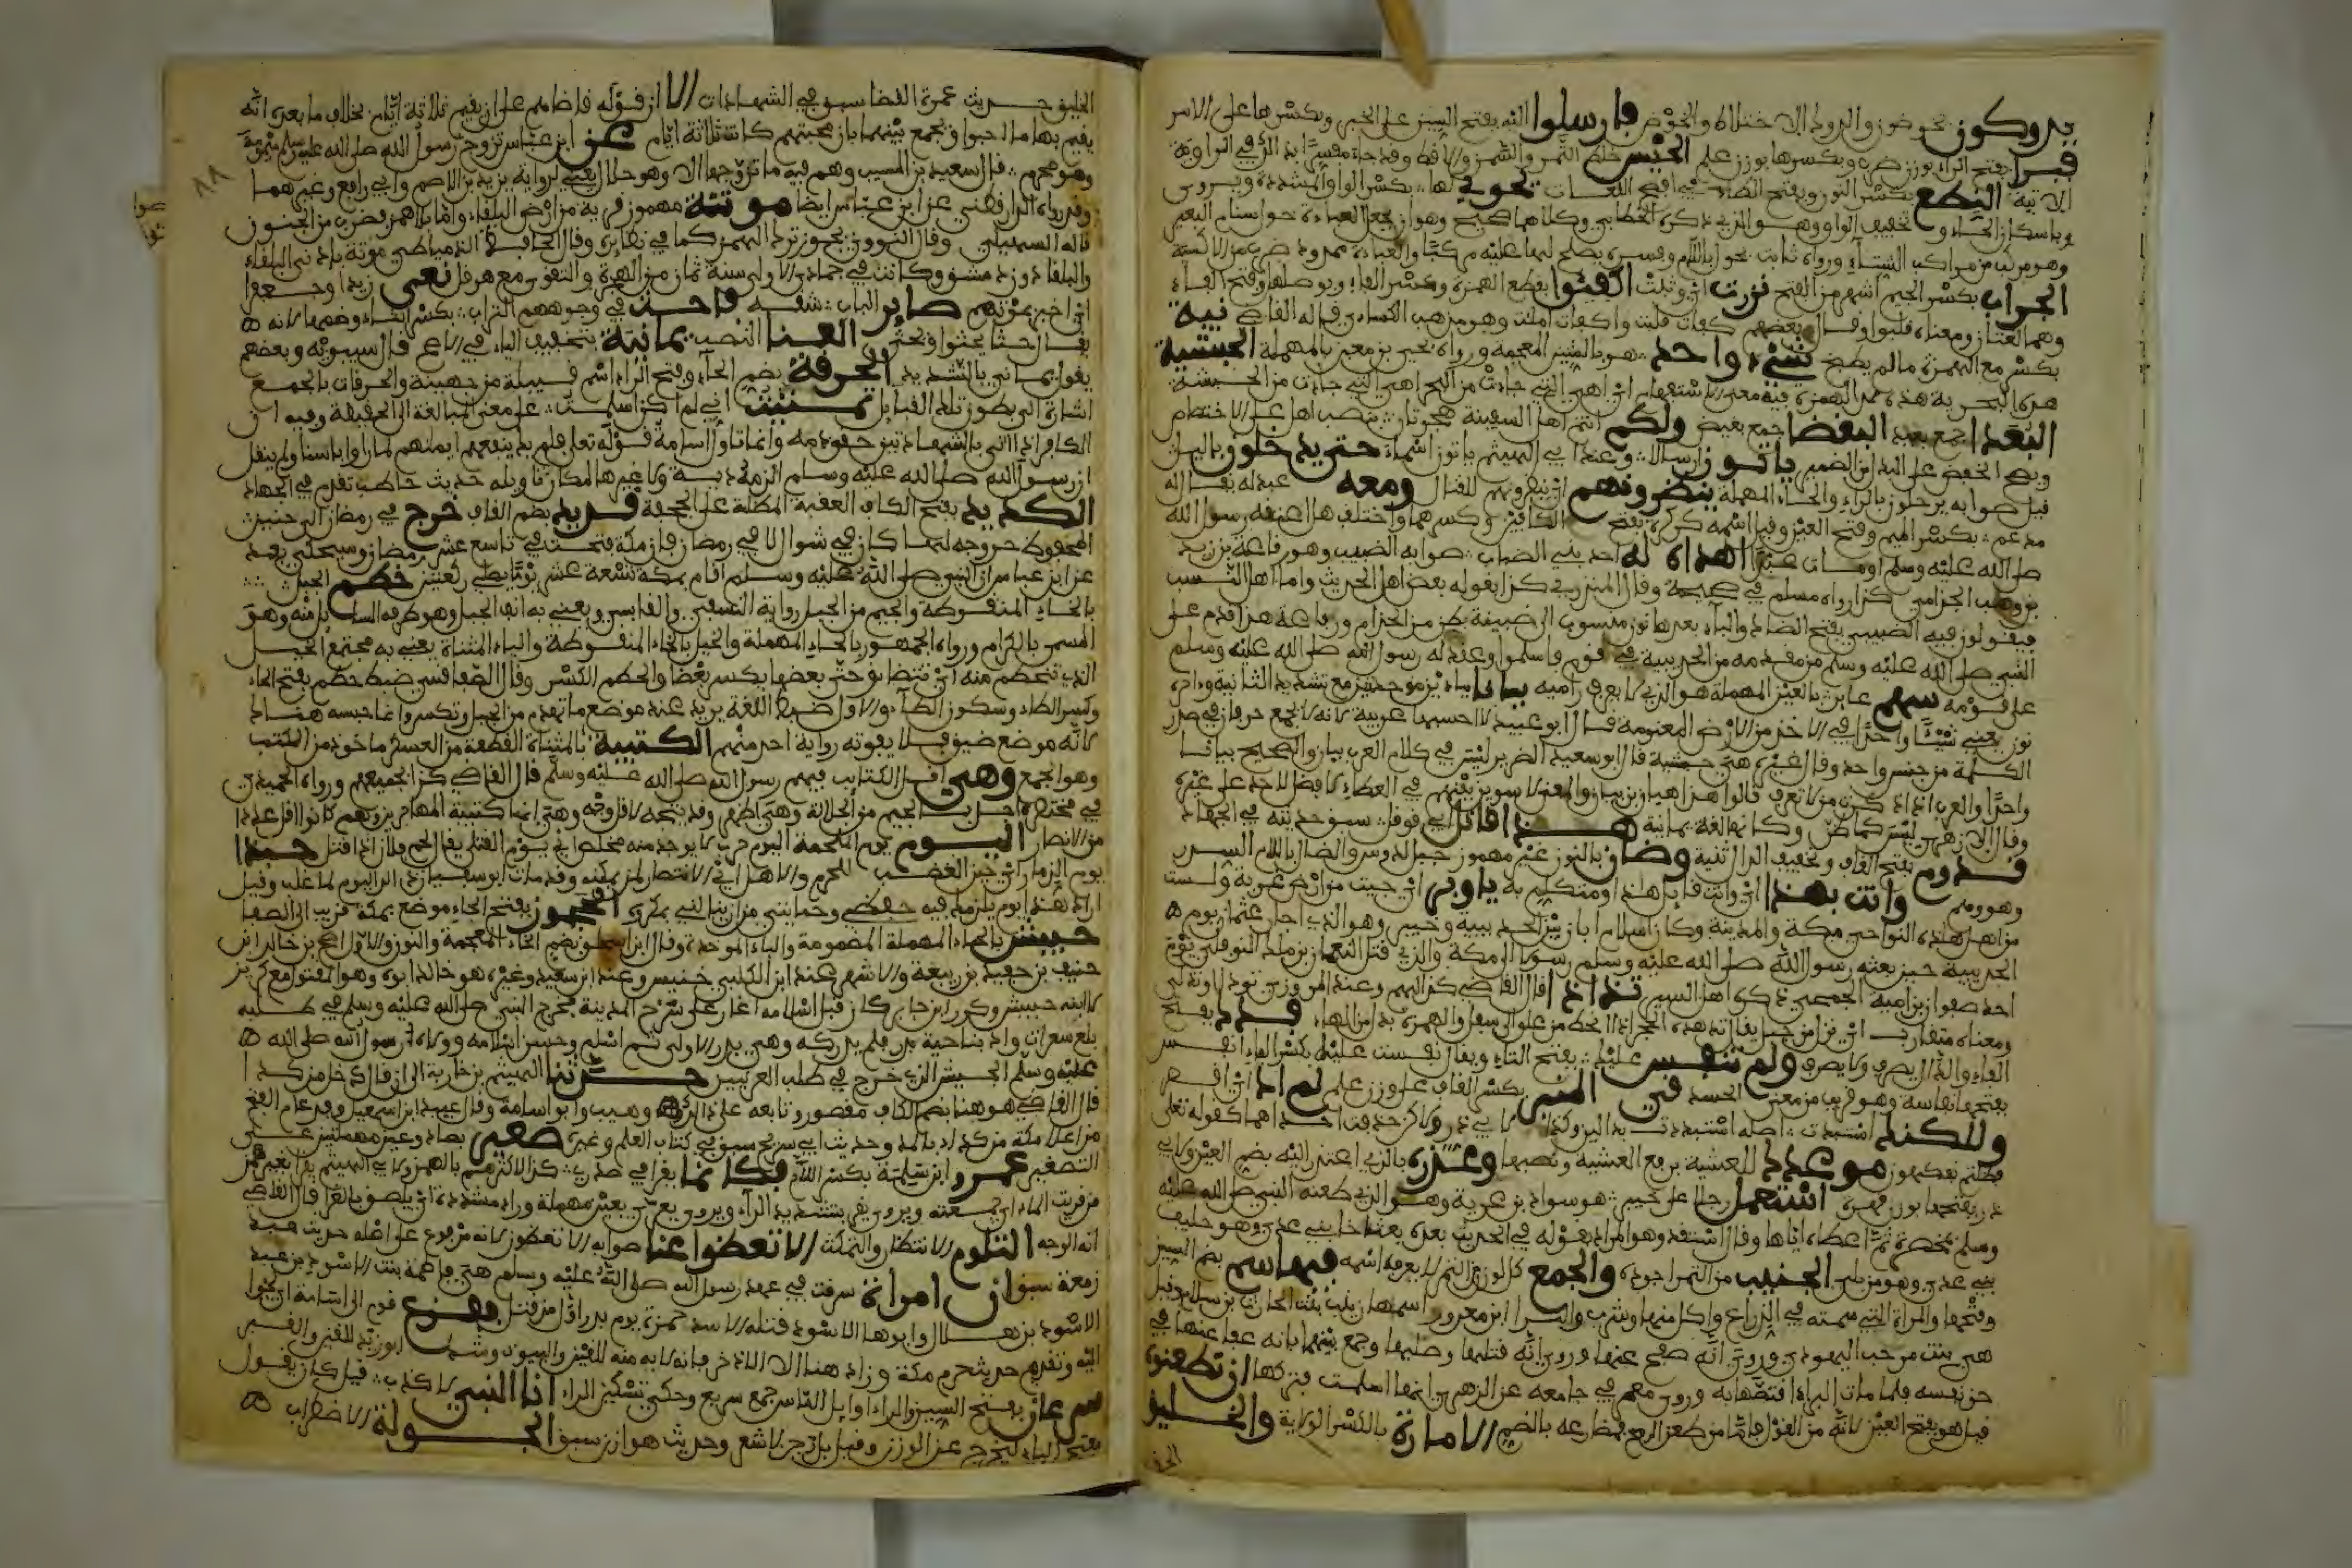 يدوكون يخوضون والدوك الاختلاط والخوض فارسلوا اليه بفتح السين على الخبر وبكسرها على الامر
قبرا بفتح الراء بوزن ضرب وبكسرها بوزن علم الحيس خلط التمر والسمن والاقط وقد جاء مفسرا
الاتية النطع بكسر النون وبفتح الطاء في افصح اللغات يحوي لها بكسر الواو المشددة ويروى
وباسكان الحاء وتخفيف الواو وهو الذي ذكره الخطابي وكلاهما صحيح وهو ان يجعل العباءة حول سنام البعير
وهو مركب من مراكب النساء ورواه ثابت يحول باللام وفسره يصلح لها عليه مركبا والعباءة ممدود ضرب من الاكسية
الجراب بكسر الجيم اشهر من الفتح فنزوت اي وثبت اكفئوا بقطع الهمزة وكسر الفاء وبوصلها وفتح الفاء
وهما لغتان ومعناه قلبوا وقال بعضهم كفات قلبت واكفات املت وهو مذهب الكسائي قاله القاضي نية
بكسر مع الهمزة ما لم يطبخ شيء واحد هو بالشين المعجمة ورواه يحيى بن معين بالمهملة الحبشية
هذه البحرية هذه بمد الهمزة فيه معنى الاستفهام اي اهي التي جاءت من البحر اهي التي جاءت من الحبشة
البعدا جمع بعيد البغضا جمع بغيض ولكم انتم اهل السفينة هجرتان بنصب اهل على الاختصاص
ويصح الخفض على البدل من الضمير ياتون ارسالا وعند ابي الهيثم ياتون اسماء حتى يدخلون بالليل
قيل صوابه يرحلون بالراء والحاء المهملة ينظرونهم اي ينتظرونهم للقتال ومعه عبد له يقال له
مدعم بكسر الميم وفتح العين وقيل اسمه كركرة بفتح الكافين وكسرهما واختلف هل اعتقه رسول الله
صلى الله عليه وسلم او مات عبدا اهداه له احد بني الضباب صوابه الضبيب وهو رفاعة بن زيد
بن وهب الجذامي كذا رواه مسلم في صحيحه وقال المنذري كذا يقوله بعض اهل الحديث واما اهل النسب
فيقولون فيه الضبيني بفتح الضاد والباء بعدها نون منسوب الى ضبينة بطن من الجذام ورفاعة هذا قدم على
النبي صلى الله عليه وسلم من مقدمه من الحديبية في قوم فاسلموا وعقد له رسول الله صلى الله عليه وسلم
على قومه سهم عاير بالعين المهملة هو الذي لا يعرف راميه ببانا بباءين موحدتين مع تشديد الثانية وادره
نون يعني شيئا واحدا في الاخر من الارض المغنومة قال ابو عبيد لا احسبها عربية لانه لا يجمع حرفان في صدر
الكلمة من جنس واحد وقال غيره هي حبشية قال ابو سعيد الضرير ليس في كلام العرب ببان والصحيح بيانا
واحدا والعرب اذا ذكرت من لا تعرف قالوا هذا هيان بن بيان والمعنى لاسوين بينهم في العطاء لا فضل لاحد على غيره
وقال الازهري ليس كما ظن وكانها لغة يمانية هذا قاتل ابن قوقل سبق حديثه في الجهاد
قدوم بفتح القاف وتخفيف الدال ثنية وضان بالنون غير مهموز جبل لدوس والضال باللام السدر
وهو وهم وانت بهذا اي وانت قايل هذا او متكلم به يا وبر اي جيت من ارض غربة ولست
من اهل هذه النواحي مكة والمدينة وكان اسلام ابان بين الحديبية وخيبر وهو الذي اجار عثمان يوم
الحديبية حين بعثه رسول الله صلى الله عليه وسلم رسولا الى مكة والذي قتل النعمان بن مالك النوفلي يوم
احد صفوان بن امية الجمحي ذكره اهل السير تداادا قال القاضي كذا لهم وعند المروزي تردا
ومعناه متقارب اي نزل من جبل يقال تدهده الحجر اذا انحط من علو الى سفل والهمزة بدل من الهاء قدد بفتح
القاف والدال يصرف ولا يصرف ولم ننفس عليك بفتح التاء ويقال نفست عليك بكسر الفاء انفس
بفتحها نفاسة وهو قريب من معنى الحسد في المنبر بكسر القاف على وزن علم لم ال اي اقصر
ولكنك استبدت اصله استبددت بدالين وكذا لابي ذر ولكن حذفت احداهما كقوله تعالى
فظلتم تفكهون موعدك للعشية برفع العشية ونصبها وعذره بالذي اعتذر اليه بضم العين ولابي
ذر بفتحها بوزن قهره استعمل رجلا على خيبر هو سواد بن غزية وهو الذي طعنه النبي صلى الله عليه
وسلم بمخصرة ثم اعطاه اياها وقال استقد وهو المراد بقوله في الحديث بعده بعث اخا بني عدي وهو حليف
بني عدي وهو من بلي الجنيب من التمر اجوده والجمع كل لون من التمر لا يعرف اسمه فيها سم بضم السين
وفتحها والمراة التي سمته في الذراع واكل منها وبشر بن البراء بن معرور اسمها زينب بنت الحارث بن سلام وقيل
هي بنت مرحب اليهودي وروي انه صفح عنها وروي انه قتلها وصلبها وجمع بينهما بانه عفا عنها في
حق نفسه فلما مات ابن البراء اقتصها به وروى معمر في جامعه عن الزهري انها اسلمت فتركها ان تطعنوا
قيل هو بفتح العين لانه من القول فاما من طعن الرمح فمضارعه بالضم الامارة بالكسر الولاية والخليق

الخليق حديث عمرة القضا سبق في الشهادات الا ان قوله قاضاهم على ان يقيم ثلاثة ايام بخلاف ما بعده انه
يقيم بها ما احبوا ويجمع بينهما بان محبتهم كانت ثلاثة ايام عن ابن عباس تزوج رسول الله صلى الله عليه وسلم ميمونة
وهو محرم قال سعيد بن المسيب وهم فيه ما تزوجها الا وهو حلال يعني لرواية يزيد بن الاصم وابي رافع وغيرهما
وقد رواه الدارقطني عن ابن عباس ايضا موتة مهموز قرية من ارض البلقاء واما بلا همز فضرب من الجنون
قاله السهيلي وقال النووي يجوز ترك الهمز كما في نظايره وقال الحافظ الدمياطي موتة بادنى البلقاء
والبلقا دون دمشق وكانت في جمادى الاولى سنة ثمان من الهجرة والتقوى مع هرقل نعى زيدا وجعفرا
اي اخبر بموتهم صاير الباب شقه فاحث في وجوههم التراب بكسر الثاء وضمها لانه
يقال حثا يحثوا ويحثي العنا النصب يمانية بتخفيف الياء في الافصح قال سيبويه وبعضهم
يقول يماني بالتشديد الحرقة بضم الحاء وفتح الراء اسم قبيلة من جهينة والحرقات بالجمع
اشارة الى بطون تلك القبايل تمنيت اني لم اكن اسلمت على معنى المبالغة لا الحقيقة وفيه ان
الكافر اذا اتى بالشهادتين حقن دمه وانما تاول اسامة قوله تعالى فلم يك ينفعهم ايمانهم لما راوا باسنا ولم ينقل
ان رسول الله صلى الله عليه وسلم الزمه دية ولا غيرها لمكان تاويله حديث حاطب تقدم في الجهاد
الكديد بفتح الكاف العقبة المطلة على الجحفة قديد بضم القاف خرج في رمضان الى حنين
المحفوظ خروجه لها كان في شوال لا في رمضان فان مكة فتحت في تاسع عشر رمضان وسيحكي بعد
عن ابن عباس ان النبي صلى الله عليه وسلم اقام بمكة تسعة عشر يوما يصلي ركعتين خطم الجبل
بالخاء المنقوطة والجيم من الجبل رواية النسفي والقابسي ويعني به انف الجبل وهو طرفه السايل منه وهو
المسمى بالكراع ورواه الجمهور بالحاء المهملة والخيل بالخاء المنقوطة والياء المثناة يعني به مجتمع الخيل
الذي تحطم منه اي تتضايق حتى بعضها يكسر بعضا والحطم الكسر وقال الصفاقسي ضبط حطم بفتح الحاء
وكسر الطاء وسكون الطاء والاول ضبط اللغة يريد عند موضع ما تهدم من الجبل وتكسر وانما حبسه هناك
لانه موضع ضيق فلا يفوته رواية احد منهم الكتيبة بالمثناة القطعة من العسكر ماخوذ من الكتب
وهو الجمع وهي اقل الكتايب فيهم رسول الله صلى الله عليه وسلم قال القاضي كذا لجميعهم ورواه الحميدي
في مختصره اجل بالجيم من الجلالة وهي اظهر وقد يتجه لاقل وجه وهي انها كتيبة المهاجرين وهم كانوا اقل عددا
من الانصار اليوم يوم الملحمة اليوم حرب لا يوجد منه مخلص اي يوم القتل يقال لحم فلان اذا قتل حبذا
يوم الذمار اي حين الغضب للحرم والاهل اي الانتصار لمن بمكة وقد مات ابو سفيان ذلك اليوم لما غلب وقيل
اراد هذا يوم يلزمك فيه حفظي وحمايتي من ان ينالني مكروه الحجون بفتح الحاء موضع بمكة قريب الى الصفا
حبيش بالحاء المهملة المضمومة والباء الموحدة وقال ابن اسحاق بضم الخاء المعجمة والنون والاول اصح بن خالد ابن
حنيف بن جعيد بن ربيعة والاشهر عند ابن الكلبي خنيس وعند ابن سعيد وغيره هو خالد ابوه وهو المقتول مع كرز
لا ابنه حبيش وكرز ابن جابر كان قبل اسلامه اغار على سرح المدينة فخرج النبي صلى الله عليه وسلم في طلبه
بلغ سفوان واد بناحية بدر فلم يدركه وهي بدر الاولى ثم اسلم وحسن اسلامه وولاه رسول الله صلى الله
عليه وسلم الجيش الذي خرج في طلب العرنيين حدثنا الهيثم بن خارجة الى ان قال دخل من كدا
قال القاضي هو هنا بضم الكاف مقصور وتابعه على ذلك وهيب وابو اسامة وقال عبيد ابن اسمعيل دخل عام الفتح
من اعلا مكة من كداء بالمد وحديث ابي شريح سبق في كتاب العلم وغيره صعير بصاد وعين مهملتين على
التصغير عمرو ابن سلمة بكسر اللام فكانما يقرا في صدري كذا لاكثرهم بالهمز ولابي الهيثم يقرا بغير همز
من قريت الماء اي جمعته ويروى يقر بتشديد الراء ويروى يغرى بغين مهملة وراء مشددة اي يلصق بالغرا قال القاضي
انه الوجه التلوم الانتظار والتمكث الا تغطوا عنا صوابه الا تغطون لانه مرفوع على اصله حديث عبد
زمعة سبق ان امراة سرقت في عهد رسول الله صلى الله عليه وسلم هي فاطمة بنت الاسود بن عبد
الاسود بن هلال وابوها الاسود قتله الاسد حمزة يوم بدر اول من قتل ففزع قوم الى اسامة اي لجوا
اليه وتقدم حديث تحريم مكة وزاد هنا الا الاذخر فانه لا بد منه للقين والبيوت وشك ابو زيد للقين والقبر
سرعان بفتح السين والراء اوايل الناس جمع سريع وحكي تسكين الراء انا النبي لا كذب قيل كان يقول
بفتح الباء ليخرج عن الوزن وقيل بل رجز لا شعر وحديث هوازن سبق الجولة الاضطراب